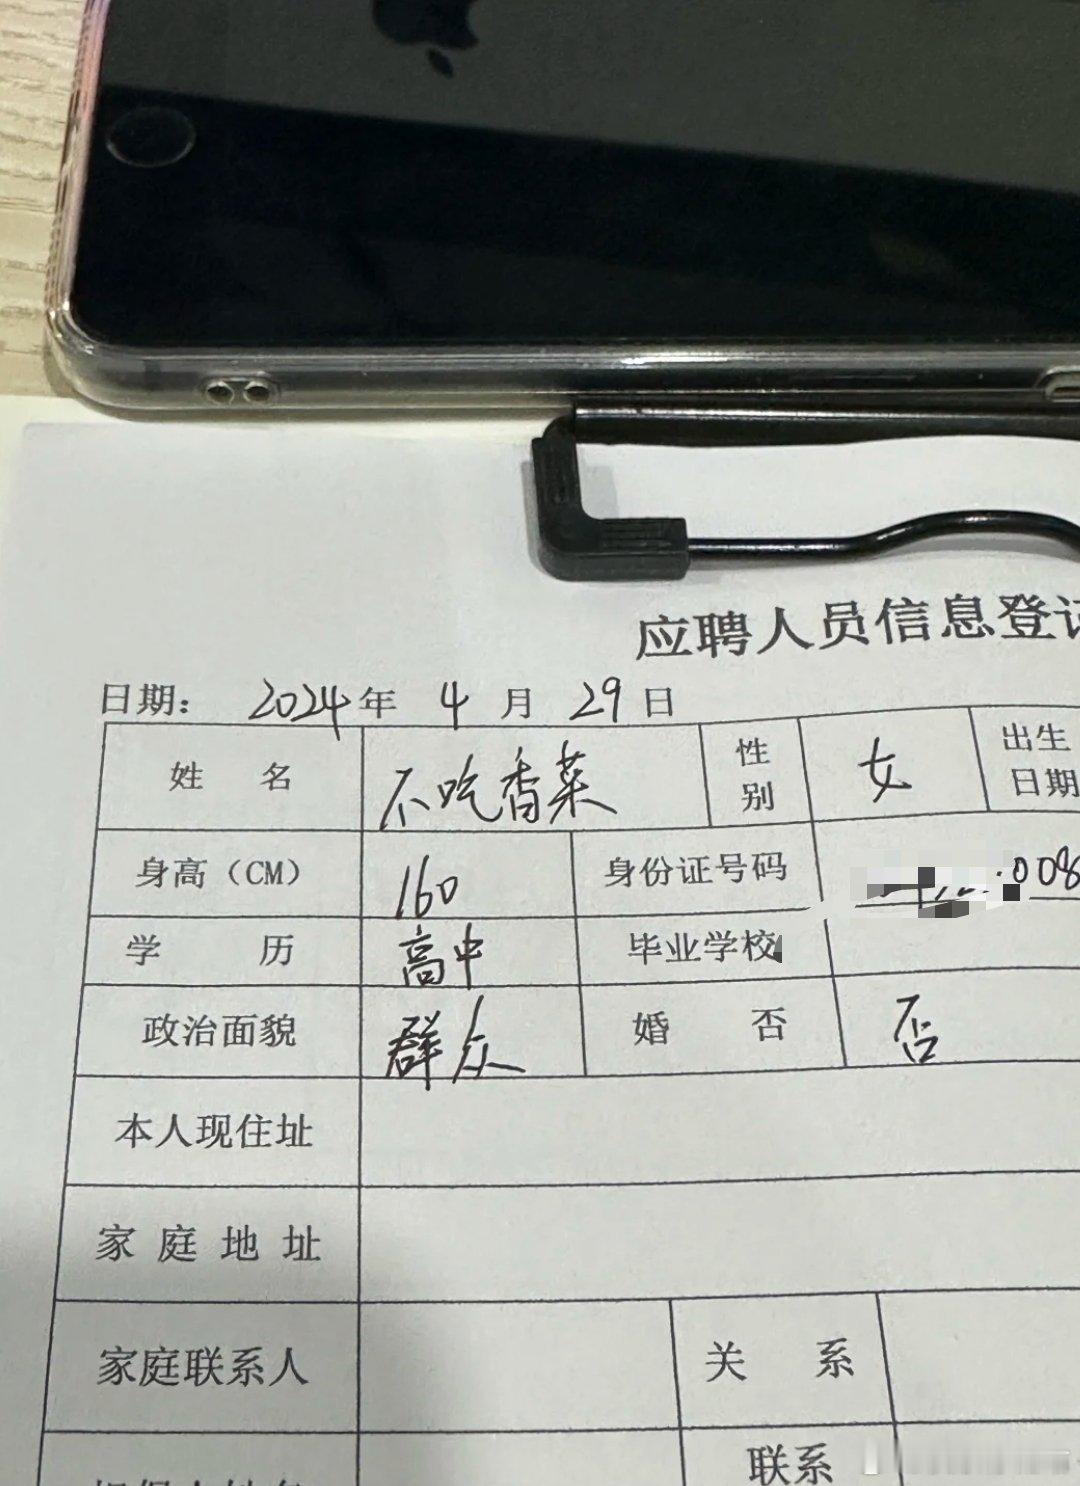 应聘人员信息登
日期： 2024 年 4 月 29 日
姓 名 不吃香菜 性别 女 出生日期
身高（CM） 160 身份证号码 008
学 历 高中 毕业学校
政治面貌 群众 婚 否 否
本人现住址
家 庭 地 址
家庭联系人 关 系
联系